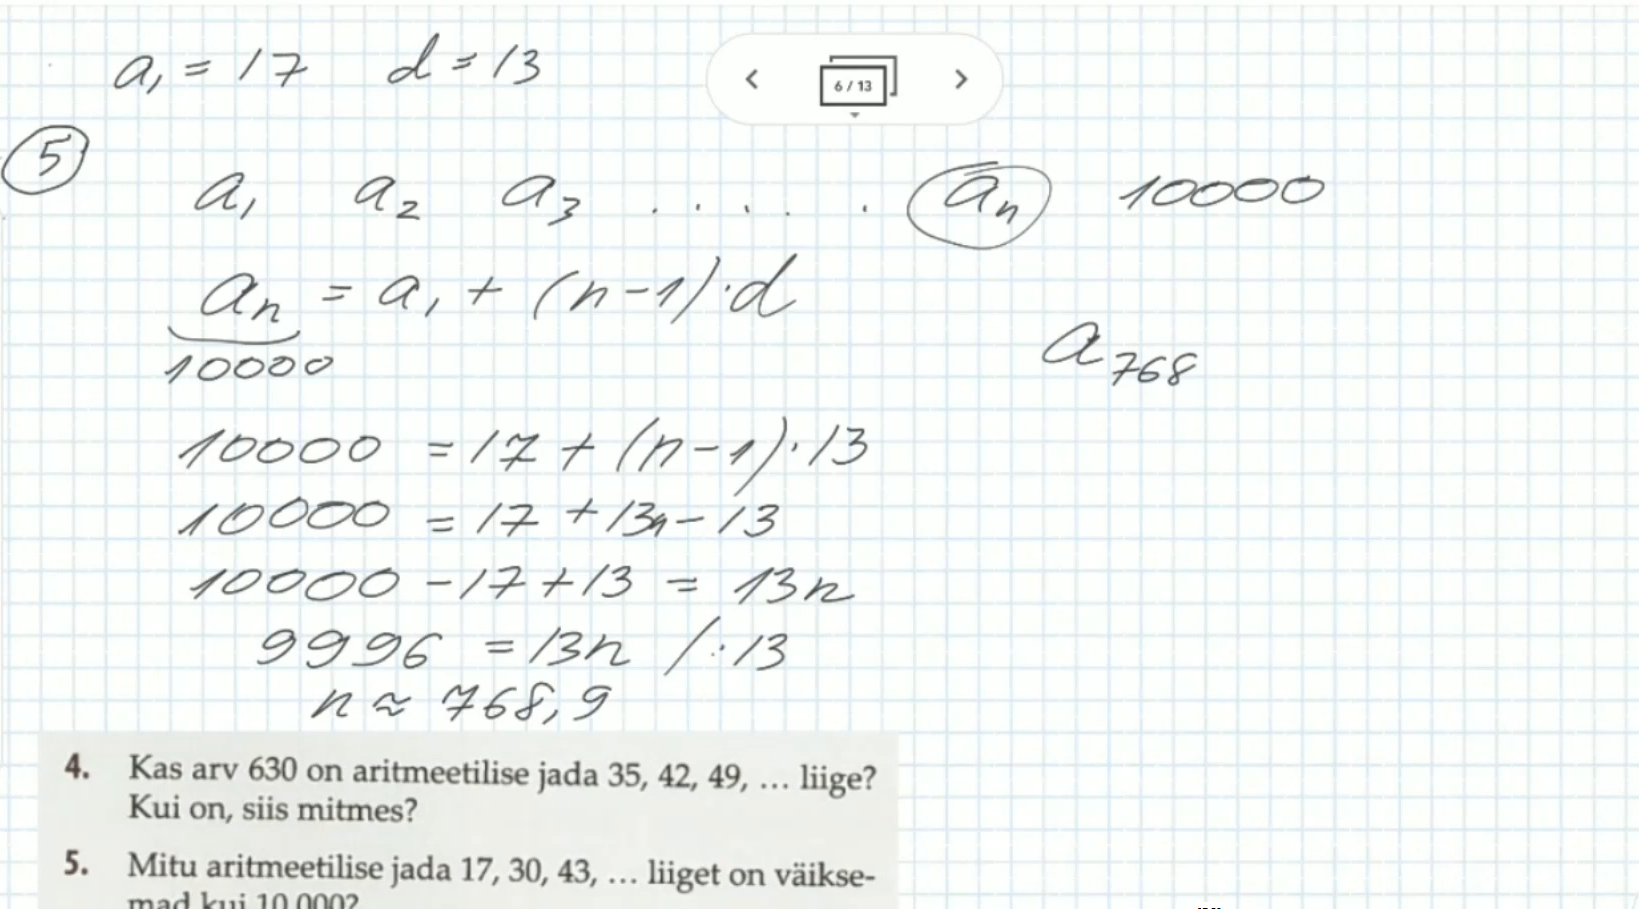 a₁ = 17 d = 13
6 / 13
5
a₁ a₂ a₃ . . . . . aₙ 10000
aₙ = a₁ + (n-1)·d
10000
a₇₆₈
10000 = 17 + (n-1)·13
10000 = 17 + 13n - 13
10000 - 17 + 13 = 13n
9996 = 13n /:13
n ≈ 768,9
4. Kas arv 630 on aritmeetilise jada 35, 42, 49, … liige?
Kui on, siis mitmes?
5. Mitu aritmeetilise jada 17, 30, 43, … liiget on väikse-
mad kui 10 000?